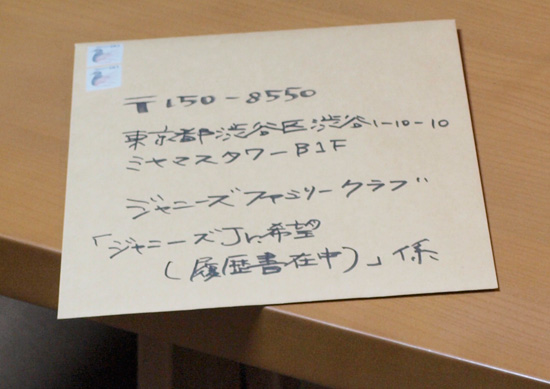 〒150-8550
東京都渋谷区渋谷1-10-10
ミヤマスタワーB1F
ジャニーズファミリークラブ
「ジャニーズJr.希望
(履歴書在中)」係